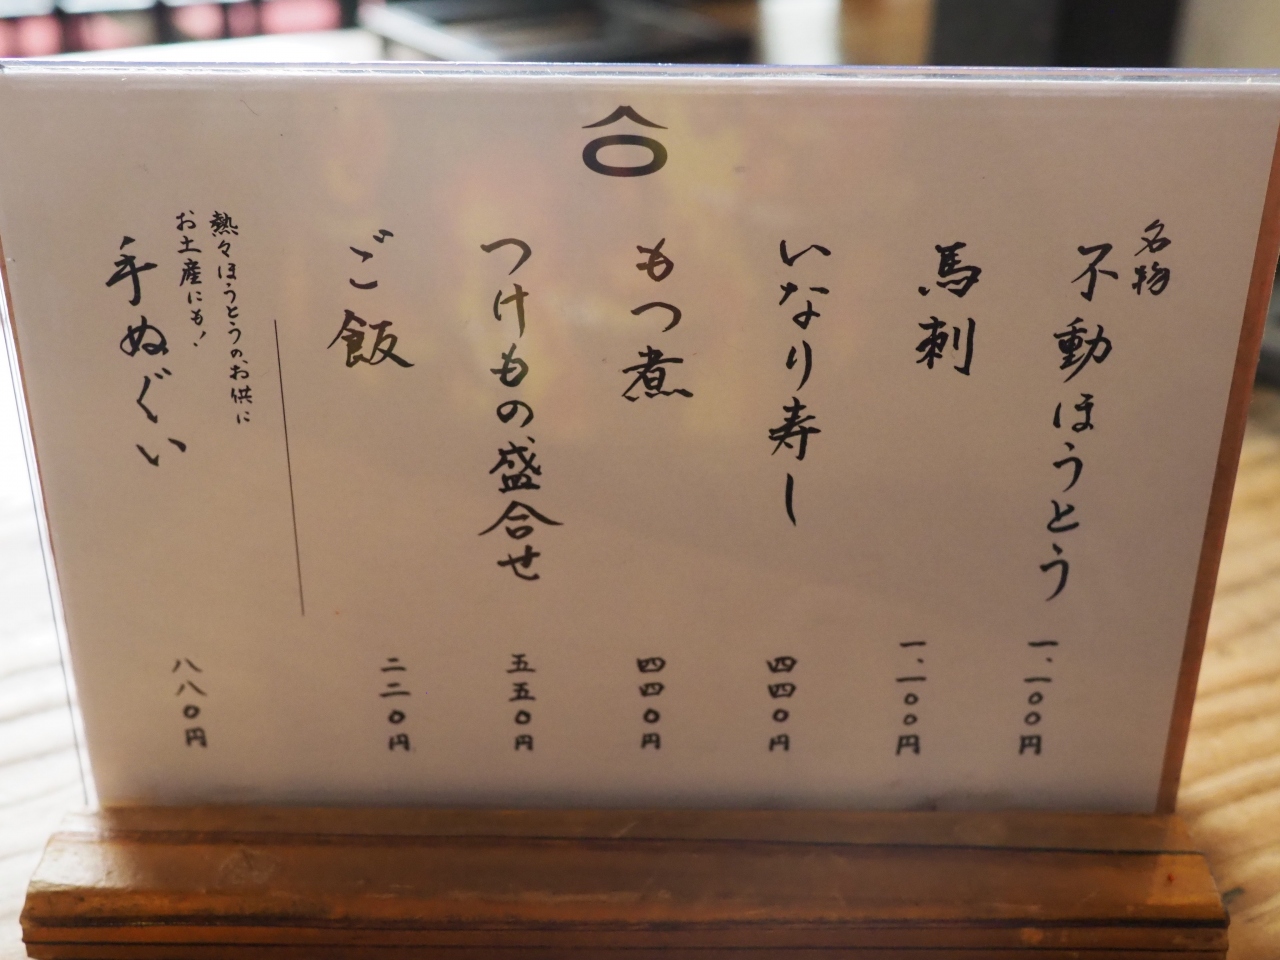 名物
不動ほうとう
一、一〇〇円
馬刺
一、一〇〇円
いなり寿し
四四〇円
もつ煮
四四〇円
つけもの盛合せ
五五〇円
ご飯
二二〇円
熱々ほうとうのお供に
お土産にも!
手ぬぐい
八八〇円